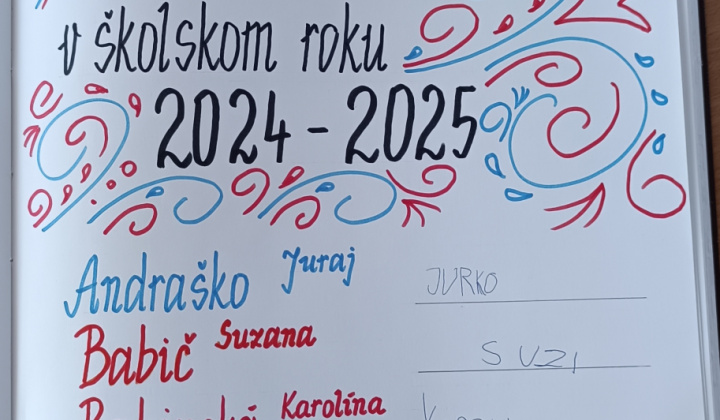 v školskom roku
2024 - 2025
Andraško Juraj JURKO
Babič Suzana SUZI
Karolína